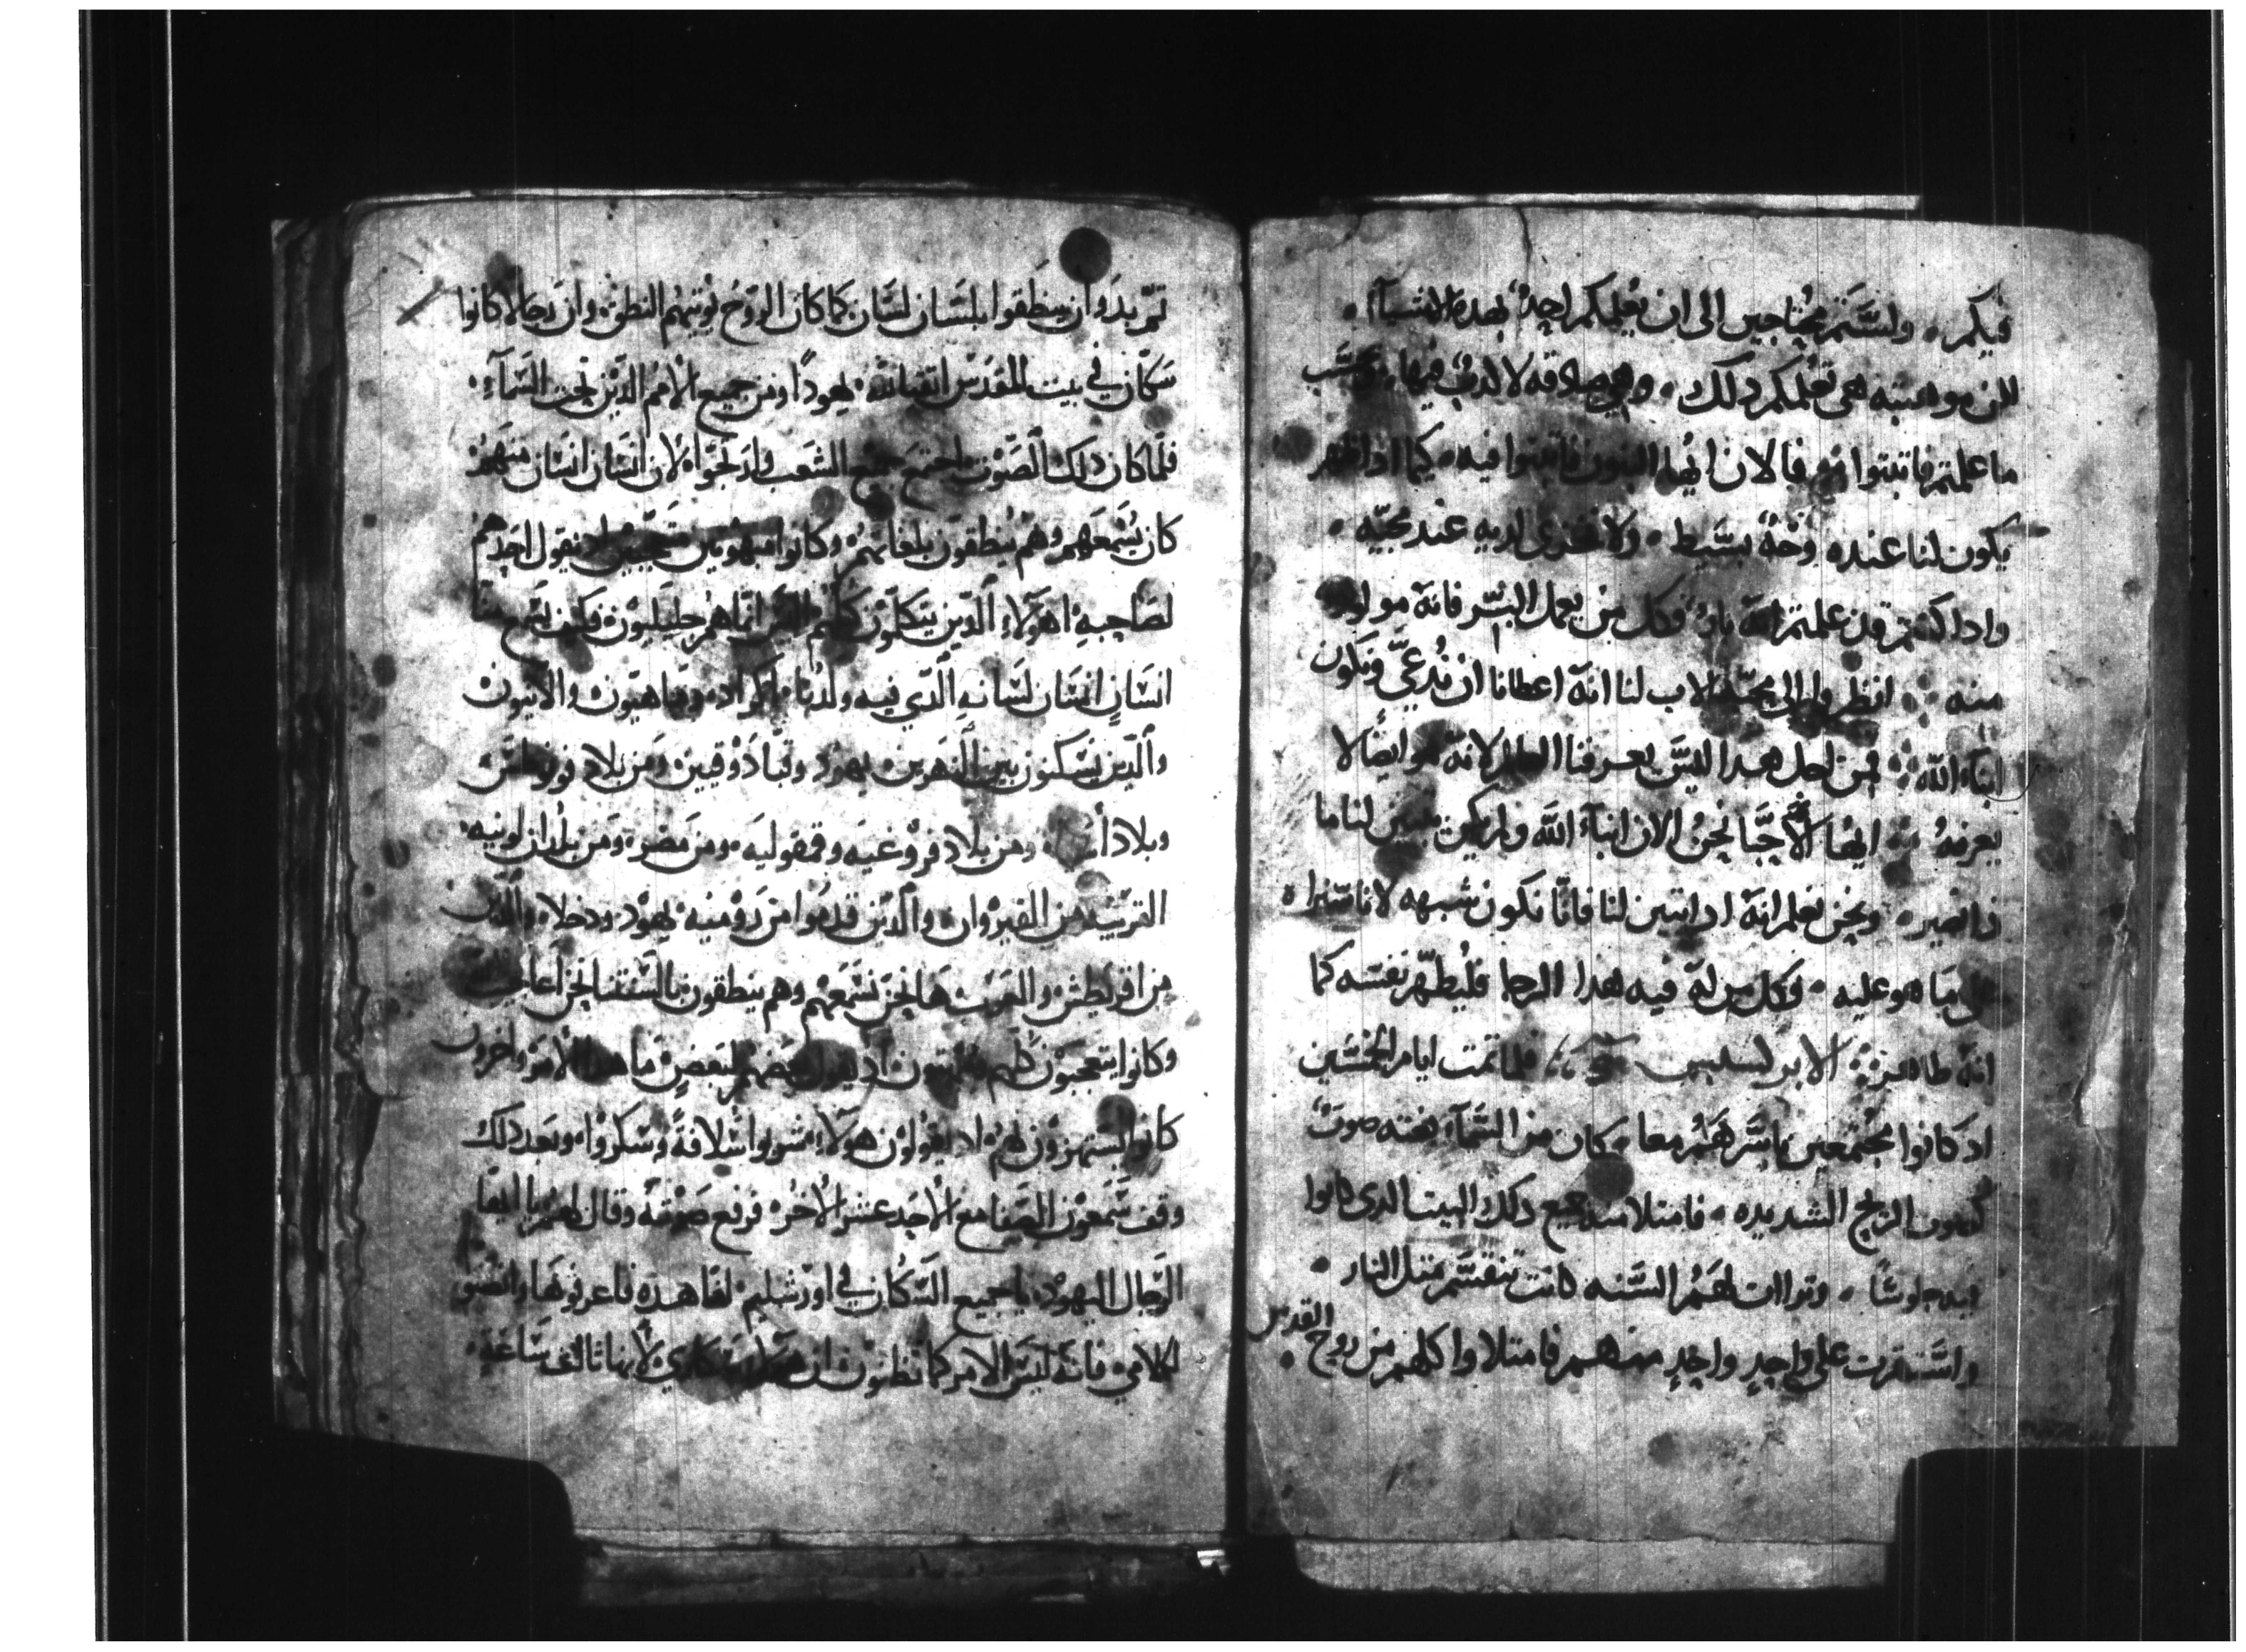 فيكم، ولستم محتاجين الى ان يعلمكم احد بهده الاشيآ،
لكن موهبته هى تعلمكم دلك، وهى صادقه لا كدب فيها، وحسب
ما علمتم فاتبتوا فيه فالان ايها البنون فاتبتوا فيه، كيما ادا ظهر
يكون لنا عنده وجهٌ بسيط، ولا نخزى لديه عند مجيّه،
وادا كنتم قد علمتم انه بارٌ فكل من يعمل البرّ فانه مولود
منه، انظروا الى محبّة الاب لنا انه اعطانا ان نُدعى ونكون
ابناء الله، فمن اجل هدا ليس يعرفنا العالم لانه هو ايضًا لا
يعرفهُ ايها الاحبّا نحن الان ابنآء الله ولم يكن تبين لنا ما
دا نصير، ونحن نعلم انه ادا تبين لنا فانّا نكون شبهه لانا سنراه
على ما هو عليه، وكل من له فيه هدا الرجا فليُطهّر نفسه كما
انه طاهر، الابركسيس فلما تمت ايام الخمسين
اد كانوا مجتمعين باسرهم معا، كان من السّمآء بغته صوت
كصوت الريح الشديده، فامتلا منه جميع دلك البيت الدى كانوا
فيه جلوسًا، وتراات لهم السنه كانت تنقسم متل النار
واستقرت على واحدٍ واحدٍ منهم فامتلاوا كلهم من روح القدس
تمّ بدوا ان ينطقوا بلسان لسان كما كان الروح يُوتيهم النطق، وان رجالا كانوا
سكّان في بيت المقدس اتقيا لله، يهودًا ومن جميع الامم الدّين تحت السّمآءِ،
فلمّا كان دلك الصّوت اجتمع جميع الشعب وارتجّوا، لان انسان انسان منهم
كان يُسمعهم وهم ينطقون بلغاتهم، وكانوا مبهوتين متعجّبين اد يقول احدهم
لصاحبه اهولاءِ الّدين يتكلّون كلهم اليس انّما هم جليليون، فكيف نسمع منّا
انسانٍ انسان لسانه الّدي فيه ولدنا، اكراد، وماهيّون، والانيون
والّدين يسكنون بين النهرين، يهود وقبّادوقيين، ومن بلاد فونطس
وبلاد اسيا، ومن بلاد فروغيه وفمفوليه، ومن مصر، ومن بلدان لوبيه،
القريبة من القيروان، والّدين قدموا من رومية، يهود ودخلا، والّدين
من اقريطش، والعرب ها نحن نسمعهم وهم ينطقون بالسنتنا نحن اعاجيب
وكانوا يتعجّبون كلهم ويبهتون اد يقول بعضهم لبعضٍ ما هدا الامر، واخرون
كانوا يستهزون بهم، اد يقولون هولاءِ شربوا سُلافةً وسكروا، وبعد دلك
وقف سمعون الصفا مع الاحد عشر الاخر، فرفع صوته وقال لهم يا ايها
الرّجال اليهود، يا جميع السّكان في اورشليم، لها هده فاعرفوها وانصتوا
لكلامي، فانه ليس الامر كما تظنون، ان هولاء سكاري، لانها تالت ساعةٍ،